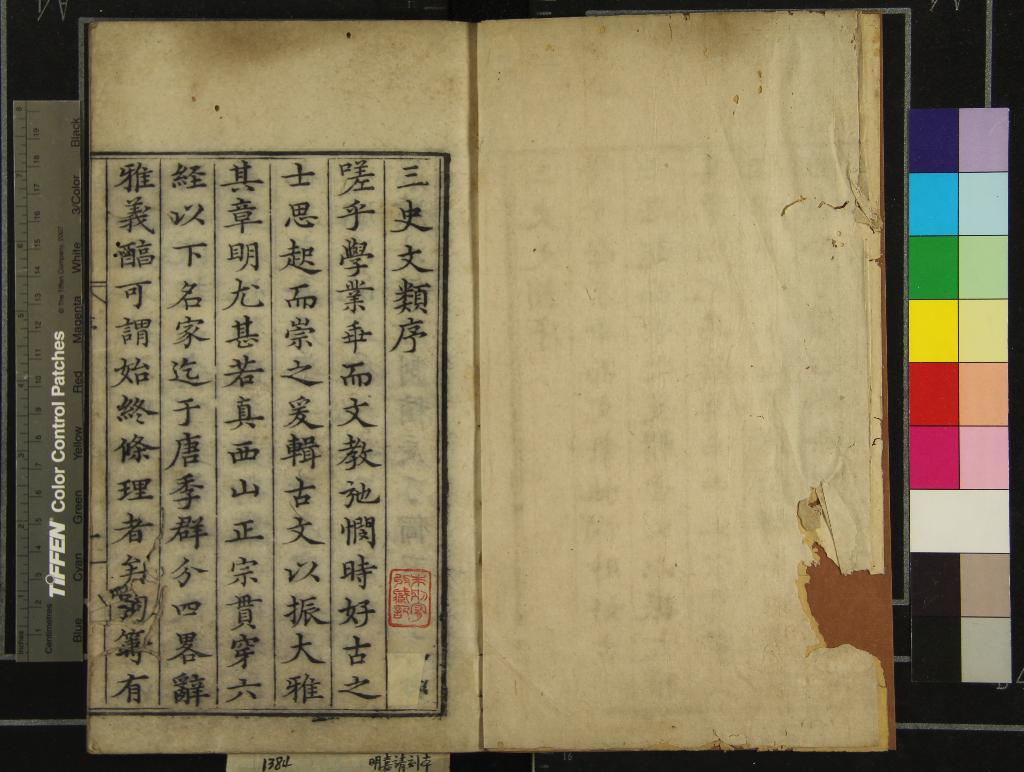 三史文類序
嗟乎學業乖而文教弛憫時好古之
士思起而崇之爰輯古文以振大雅
其章明尤甚若真西山正宗貫穿六
経以下名家迄于唐季群分四畧辭
雅義醇可謂始終條理者矣詞筭有
1384 明嘉靖刻本
TIFFEN Color Control Patches
© The Tiffen Company, 2007
Centimetres
Inches
Blue Cyan Green Yellow Red Magenta White 3/Color Black